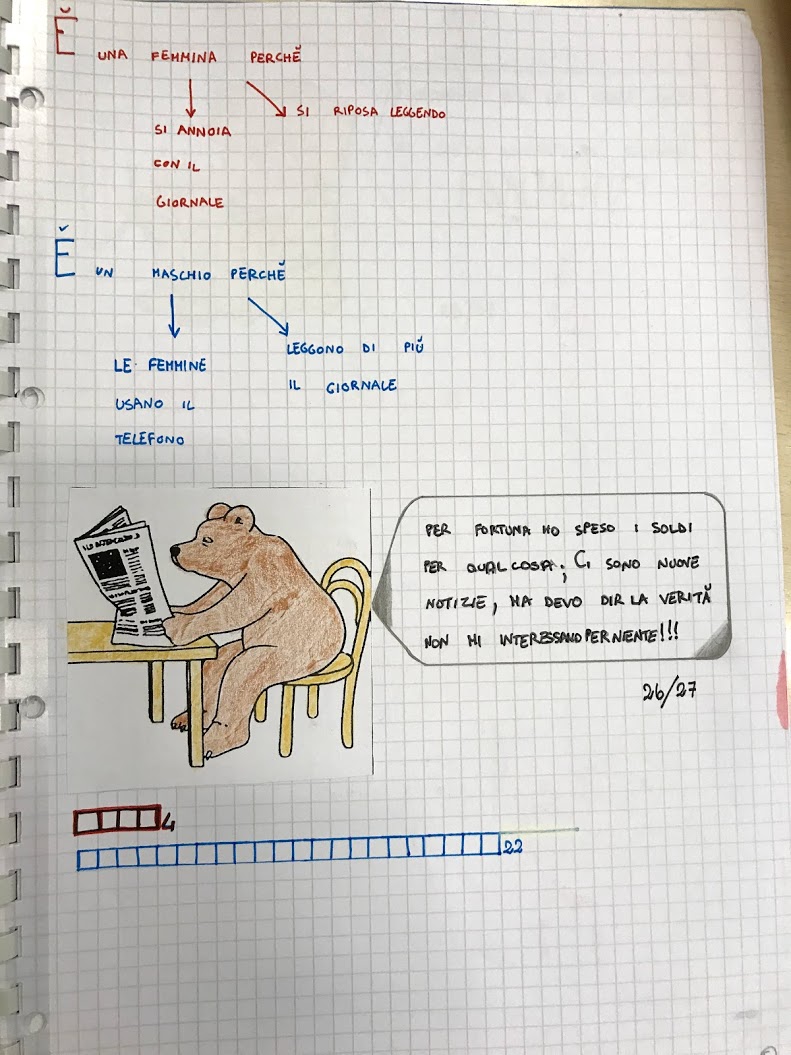 Ĕ UNA FEMMINA PERCHĔ
SI RIPOSA LEGGENDO
SI ANNOIA
CON IL
GIORNALE
Ĕ UN MASCHIO PERCHĔ
LEGGONO DI PIŬ
IL GIORNALE
LE FEMMINE
USANO IL
TELEFONO
PER FORTUNA HO SPESO I SOLDI
PER QUALCOSA; CI SONO NUOVE
NOTIZIE, MA DEVO DIR LA VERITĂ
NON MI INTERESSANO PER NIENTE!!!
26/27
4
22